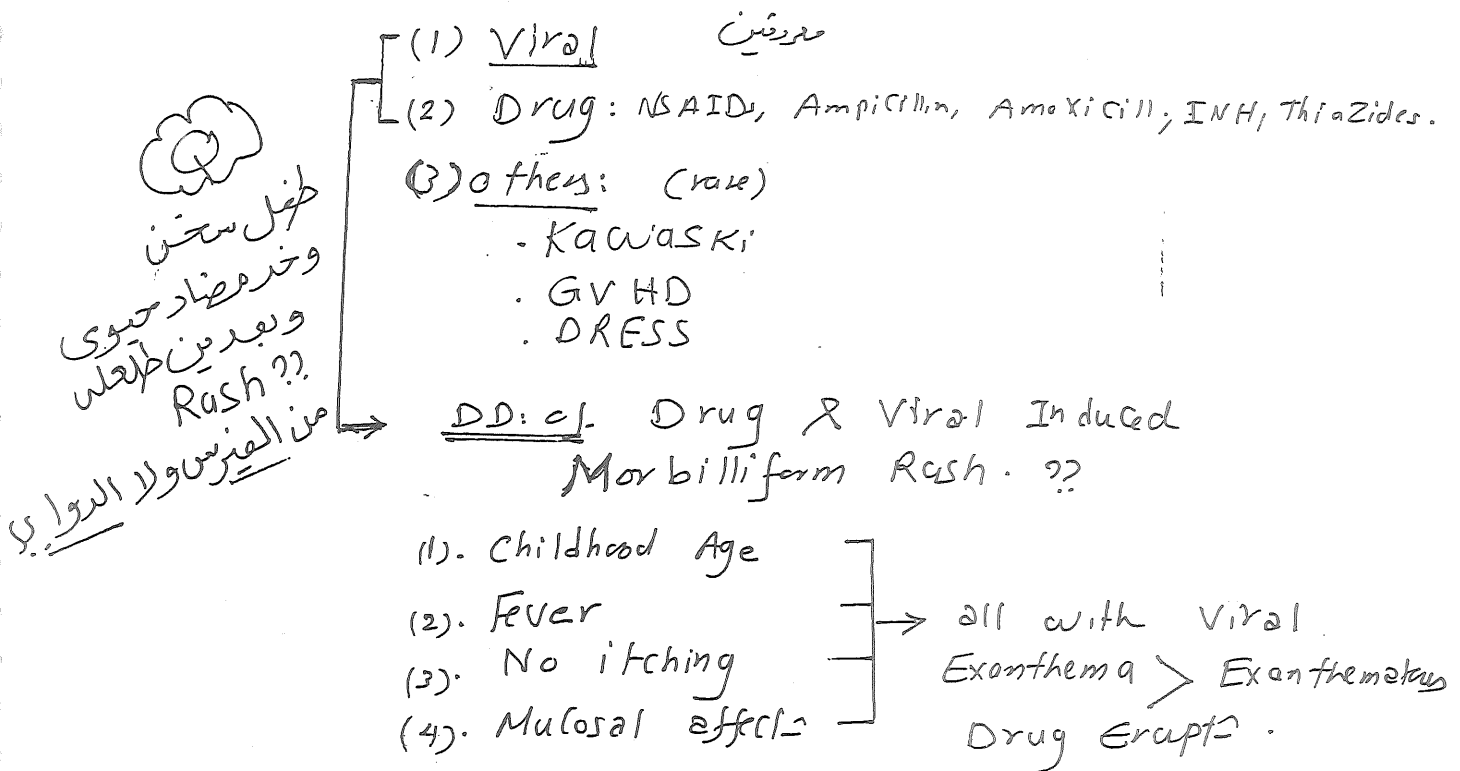 (1) Viral
(2) Drug: NSAIDs, Ampicillin, Amoxicill, INH, Thiazides.
(3) others: (rare)
. Kawaski
. GVHD
. DRESS
طفل سخن
وخد مضاد حيوى
وبعدين طلعله
Rash ??
من الفيرس ولا الدوا ؟؟
DD: Drug & Viral Induced
Morbilliform Rash. ??
(1). Childhood Age
(2). Fever
(3). No itching
(4). Mucosal affect=
all with Viral
Exanthema > Exanthematous
Drug Erupt=.